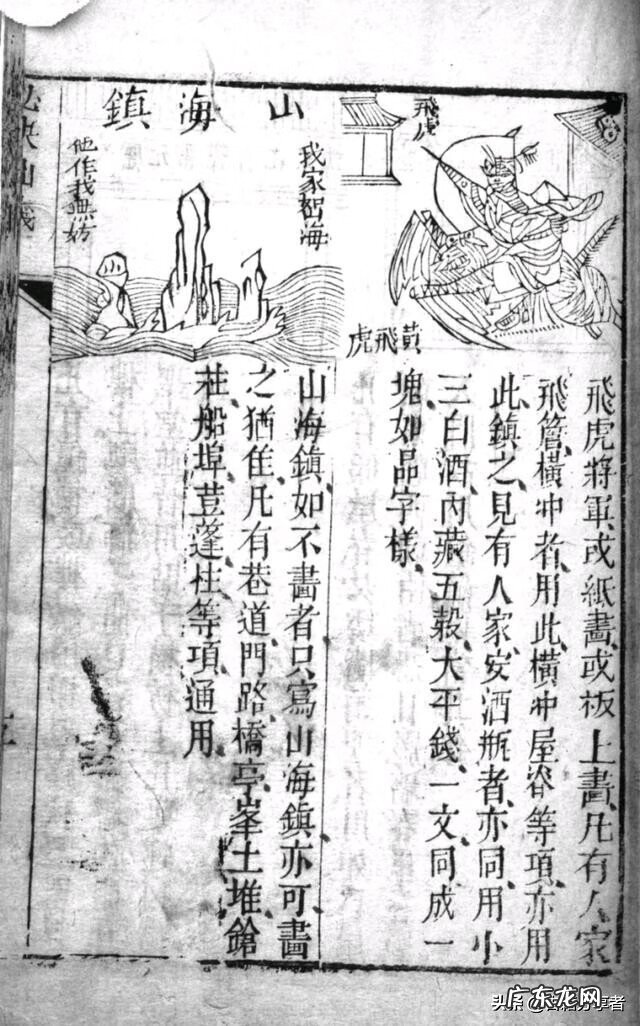 飛虎
黃飛虎
飛虎將軍或紙畫或板上畫凡有人家
飛簷橫冲者用此橫冲屋脊等項亦用
此鎮之見有人家安酒瓶者亦同用小
三白酒內藏五穀大平錢一文同成一
塊如品字樣
山海鎮
我家海
他作我無妨
山海鎮如不畵者只寫山海鎮亦可畵
之猶佳凡有巷道門路橋亭峯土堆鎗
柱船埠荳蓬柱等項通用
头条
分享者
广东龙网